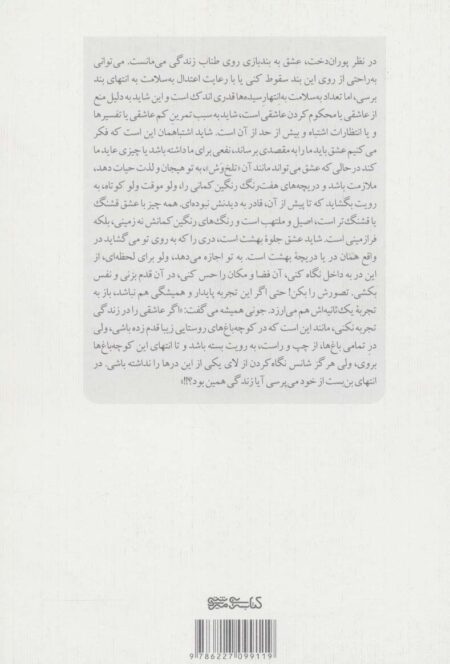 در نظر پوران‌دخت، عشق به بندبازی روی طناب زندگی می‌مانست. می‌توانی
به‌راحتی از روی این بند سقوط کنی یا با رعایت اعتدال به‌سلامت به انتهای بند
برسی، اما تعداد به‌سلامت به‌انتهارسیده‌ها قدری اندک است و این شاید به دلیل منع
از عاشقی یا محکوم کردن عاشقی است، شاید به سبب تمرین کم عاشقی یا تفسیرها
و یا انتظارات اشتباه و بیش از حد از آن است. شاید اشتباهمان این است که فکر
می‌کنیم عشق باید ما را به مقصدی برساند، نفعی برای ما داشته باشد یا چیزی عاید ما
کند در حالی که عشق می‌تواند مانند آن «تلخ‌وش»، به تو هیجان و لذت حیات دهد،
ملازمت باشد و دریچه‌های هفت‌رنگ رنگین کمانی را، ولو موقت ولو کوتاه، به
رویت بگشاید که تا پیش از آن، قادر به دیدنش نبوده‌ای. همه چیز با عشق قشنگ
یا قشنگ‌تر است، اصیل و ملتهب است و رنگ‌های رنگین کمانش نه زمینی، بلکه
فرازمینی است. شاید عشق جلوهٔ بهشت است، دری را که به روی تو می‌گشاید در
واقع همان در یا دریچهٔ بهشت است. به تو اجازه می‌دهد، ولو برای لحظه‌ای، از
این در به داخل نگاه کنی، آن فضا و مکان را حس کنی، در آن قدم بزنی و نفس
بکشی. تصورش را بکن! حتی اگر این تجربه پایدار و همیشگی هم نباشد، باز به
تجربهٔ یک‌ثانیه‌اش هم می‌ارزد. جونی همیشه می‌گفت: «اگر عاشقی را در زندگی
تجربه نکنی، مانند این است که در کوچه‌باغ‌های روستایی زیبا قدم زده باشی، ولی
درِ تمامی باغ‌ها، از چپ و راست، به رویت بسته باشد و تا انتهای این کوچه‌باغ‌ها
بروی، ولی هرگز شانس نگاه کردن از لای یکی از این درها را نداشته باشی. در
انتهای بن‌بست از خود می‌پرسی آیا زندگی همین بود؟!!»
9 786227 099119